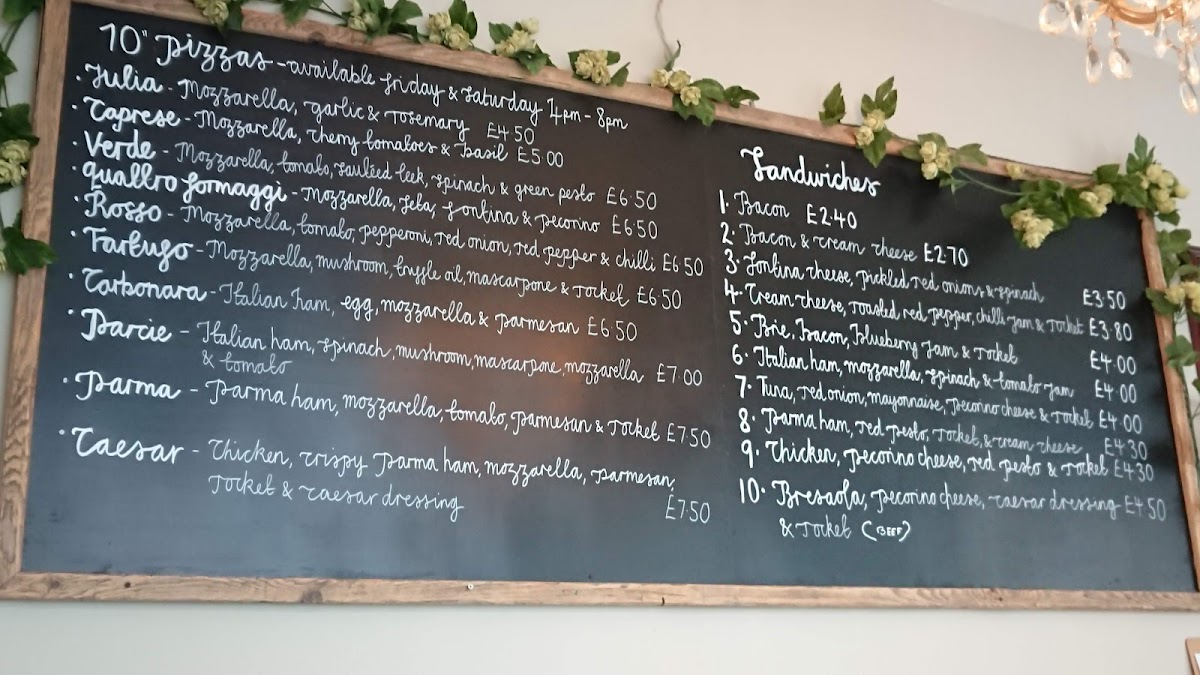 10" Pizzas - available Friday & Saturday 4pm - 8pm
· Julia - Mozzarella, garlic & rosemary £4.50
· Caprese - Mozzarella, cherry tomatoes & basil £5.00
· Verde - Mozzarella, tomato, sautéed leek, spinach & green pesto £6.50
· Quattro Formaggi - Mozzarella, feta, fontina & pecorino £6.50
· Rosso - Mozzarella, tomato, pepperoni, red onion, red pepper & chilli £6.50
· Tartufo - Mozzarella, mushroom, truffle oil, mascarpone & rocket £6.50
· Carbonara - Italian ham, egg, mozzarella & parmesan £6.50
· Darcie - Italian ham, spinach, mushroom, mascarpone, mozzarella £7.00
& tomato
· Parma - Parma ham, mozzarella, tomato, parmesan & rocket £7.50
· Caesar - Chicken, crispy parma ham, mozzarella, parmesan,
rocket & caesar dressing £7.50
Sandwiches
1. Bacon £2.40
2. Bacon & cream cheese £2.70
3. Fontina cheese, pickled red onions & spinach £3.50
4. Cream cheese, roasted red pepper, chilli jam & rocket £3.80
5. Brie, bacon, blueberry jam & rocket £4.00
6. Italian ham, mozzarella, spinach & tomato jam £4.00
7. Tuna, red onion, mayonnaise, pecorino cheese & rocket £4.00
8. Parma ham, red pesto, rocket, & cream cheese £4.30
9. Chicken, pecorino cheese, red pesto & rocket £4.30
10. Bresaola, pecorino cheese, caesar dressing £4.50
& rocket (BEEF)